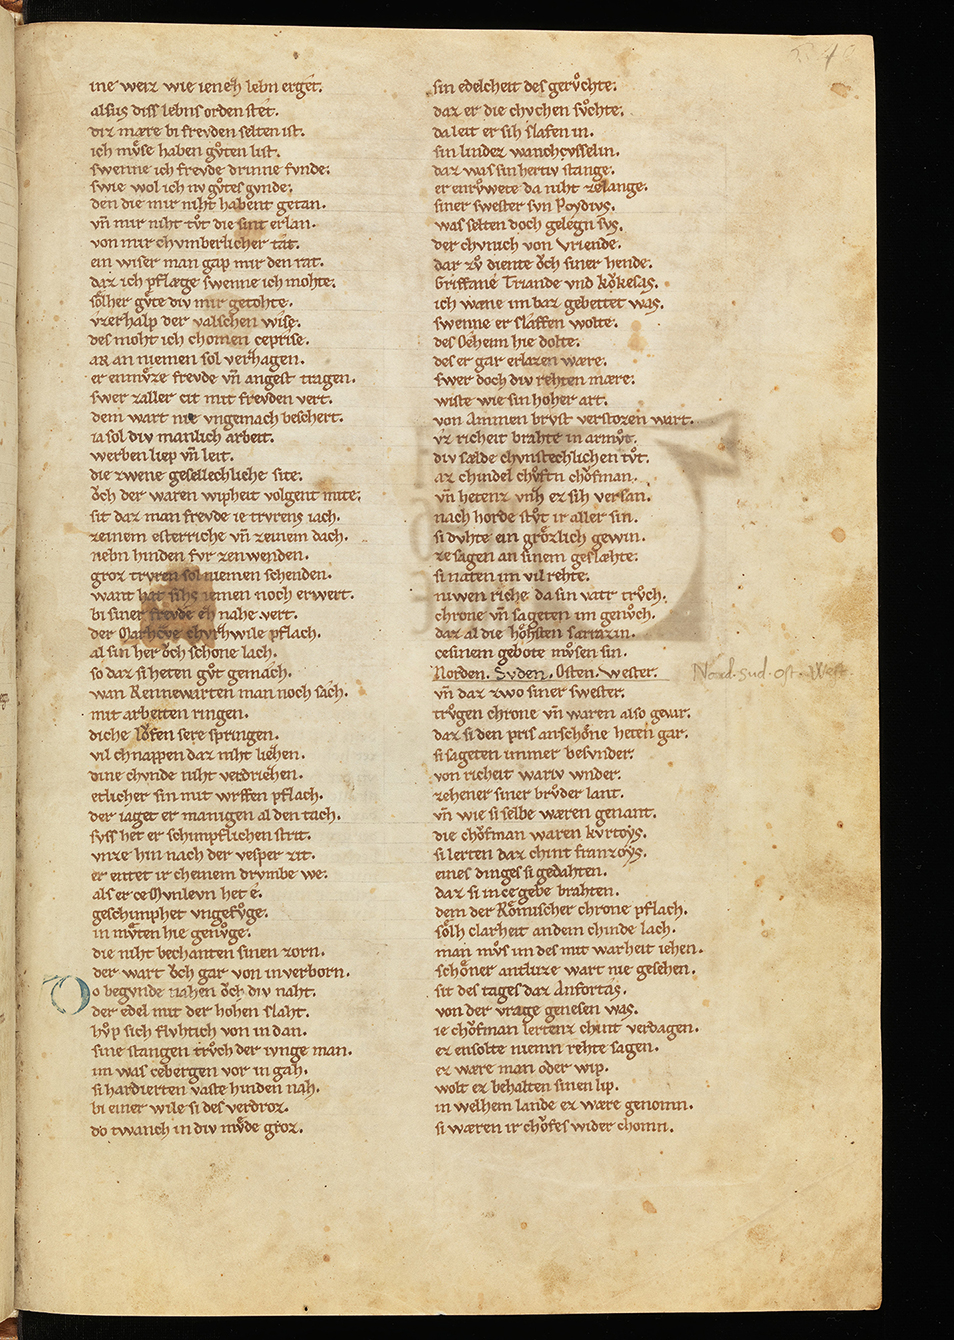 ine weiz wie ieneh lebn erget.
alsus diss lebns orden stet.
diz mære bi frevden selten ist.
ich mvͦse haben gvͦten list.
swenne ich frevde drinne fvnde.
swie wol ich nv gvͦtes gvnde.
den die mir niht habent getan.
vn̄ mir niht tvͦt die sint erlan.
von mir chvmberlicher tat.
ein wiser man gap mir den rat.
daz ich pflæge swenne ich mohte.
solher gvͦte div mir getohte.
vzerhalp der valschen wise.
des moht ich chomen ceprise.
aR an niemen sol verzagen.
er enmvͦze frevde vn̄ angest tragen.
swer zaller cit mit frevden vert.
dem wart nie vngemach beschert.
ia sol div manlich arbeit.
werben liep vn̄ leit.
die zwene gesellechliche site.
oͮch der waren wipheit volgent mite.
sit daz man frevde ie trvrens iach.
zeinem esterriche vn̄ zeinem dach.
nebn hinden fvr zenwenden.
groz trvren sol niemen schenden.
want hat sihs iemen noch erwert.
bi siner frevde ez nahe vert.
der Marhcͦve chvrhwile pflach.
al sin her oͮch schone lach.
so daz si heten gvͦt gemach.
wan Rennewarten man noch sach.
mit arbeiten ringen.
diche loͮfen sere springen.
vil chnappen daz niht liezen.
dine chvnde niht verdriezen.
etlicher sin mit wrffen pflach.
der iaget er manigen al den tach.
svss het er schimpflichen strit.
vnze hin nach der vesper zit.
er entet ir cheinem drvmbe we.
als er ce Mvnlevn het e.
geschimphet vngefvͦge.
in mvͦten hie genvͦge.
die niht bechanten sinen zorn.
der wart oͮch gar von in verborn.
Do begvnde nahen oͮch div naht.
der edel mit der hohen slaht.
hvͦp sich flvhtich von in dan.
sine stangen trvͦch der ivnge man.
im was cebergen vor in gah.
si hardierten vaste hinden nah.
bi einer wile si des verdroz.
do twanch in div mvͦde groz.
sin edelcheit des gervͦchte.
daz er die chvchen svͦchte.
da leit er sih slafen in.
sin lindez wanchvsselin.
daz was sin hertiv stange.
er enrvͦwete da niht zelange.
siner swester svn Poydivs.
was selten doch gelegn svs.
der chvnich von Vriende.
dar zvͦ diente oͮch siner hende.
Griffane Triande vnd koͮkesas.
ich wæne im baz gebettet was.
swenne er slaffen wolte.
des Oeheim hie dolte.
des er gar erlazen wære.
swer doch div rehten mære.
wiste wie sin hoher art.
von Ammen brvst verstozen wart.
vz richeit brahte in armvͦt.
div sælde chvnstechlichen tvͦt.
az chindel choͮftn choͮfman.
vn̄ hetenz vnh ez sih versan.
nach horde stvͦt ir aller sin.
si dvhte ein groͤzlich gewin.
ze sagen an sinem geslæhte.
si naten im vil rehte.
niwen riche da sin vatr trvͦch.
chrone vn̄ sageten im genvͦch.
daz al die hoͤhsten sarrazin.
cesinem gebote mvͦsen sin.
Norden. Svden. Osten. Wester. Nord. Sud. Ost. West.
vn̄ daz zwo siner swester.
trvͦgen chrone vn̄ waren also gevar.
daz si den pris anschoͤne heten gar.
si sageten immer besvnder.
von richeit wariv wnder.
zehener siner brvͦder lant.
vn̄ wie si selbe wæren genant.
die choͮfman waren kvrtoys.
si lerten daz chint franzoys.
eines dinges si gedahten.
daz si in ce gebe brahten.
dem der Roͤmischer chrone pflach.
soͤlh clarheit an dem chinde lach.
man mvͦs im des mit warheit iehen.
schoͤner antluze wart nie gesehen.
sit des tages daz Anfortas.
von der vrage genesen was.
ie choͮfman lertenz chint verdagen.
ez ensolte niemn rehte sagen.
ez wære man oder wip.
wolt ez behalten sinen lip.
in welhem lande ez wære genomn.
si wæren ir choͮfes wider chomn.